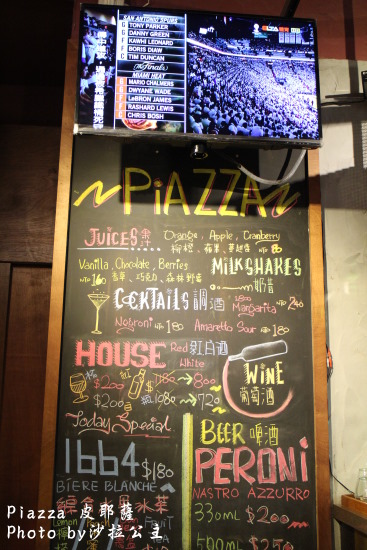 SAN ANTONIO SPURS
G TONY PARKER
G DANNY GREEN
F KAWHI LEONARD
F BORIS DIAW
C TIM DUNCAN
The Finals
MIAMI HEAT
G MARIO CHALMERS
G DWYANE WADE
F LeBRON JAMES
F RASHARD LEWIS
C CHRIS BOSH
PiAZZA
JUICES 果汁 Orange, Apple, Cranberry
柳橙、蘋果、蔓越莓 NT$ 80
Vanilla, Chocolate, Berries MILKSHAKES
NT$ 160 香草、巧克力、森林野莓 奶昔
COCKTAILS 調酒 Margarita NT$ 240
Negroni NT$ 180 Amaretto Sour NT$ 180
HOUSE Red 紅白酒
White
WiNE
葡萄酒
$200 800
$200 720
Today Special
BEER 啤酒
1664 $180
PERONI
BIERE BLANCHE
NASTRO AZZURRO
330ml $200
500ml $250
Piazza 皮耶薩
Photo by沙拉公主